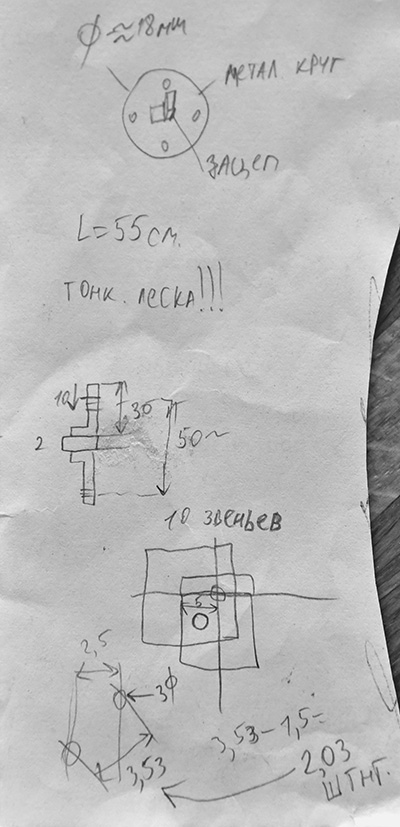 φ ≈ 18 мм
метал. круг
зацеп
L = 55 см.
тонк. леска!!!
10
30
2
50~
10 звеньев
5
2,5
3φ
3,53
3,53 - 1,5 =
2,03
штнг.